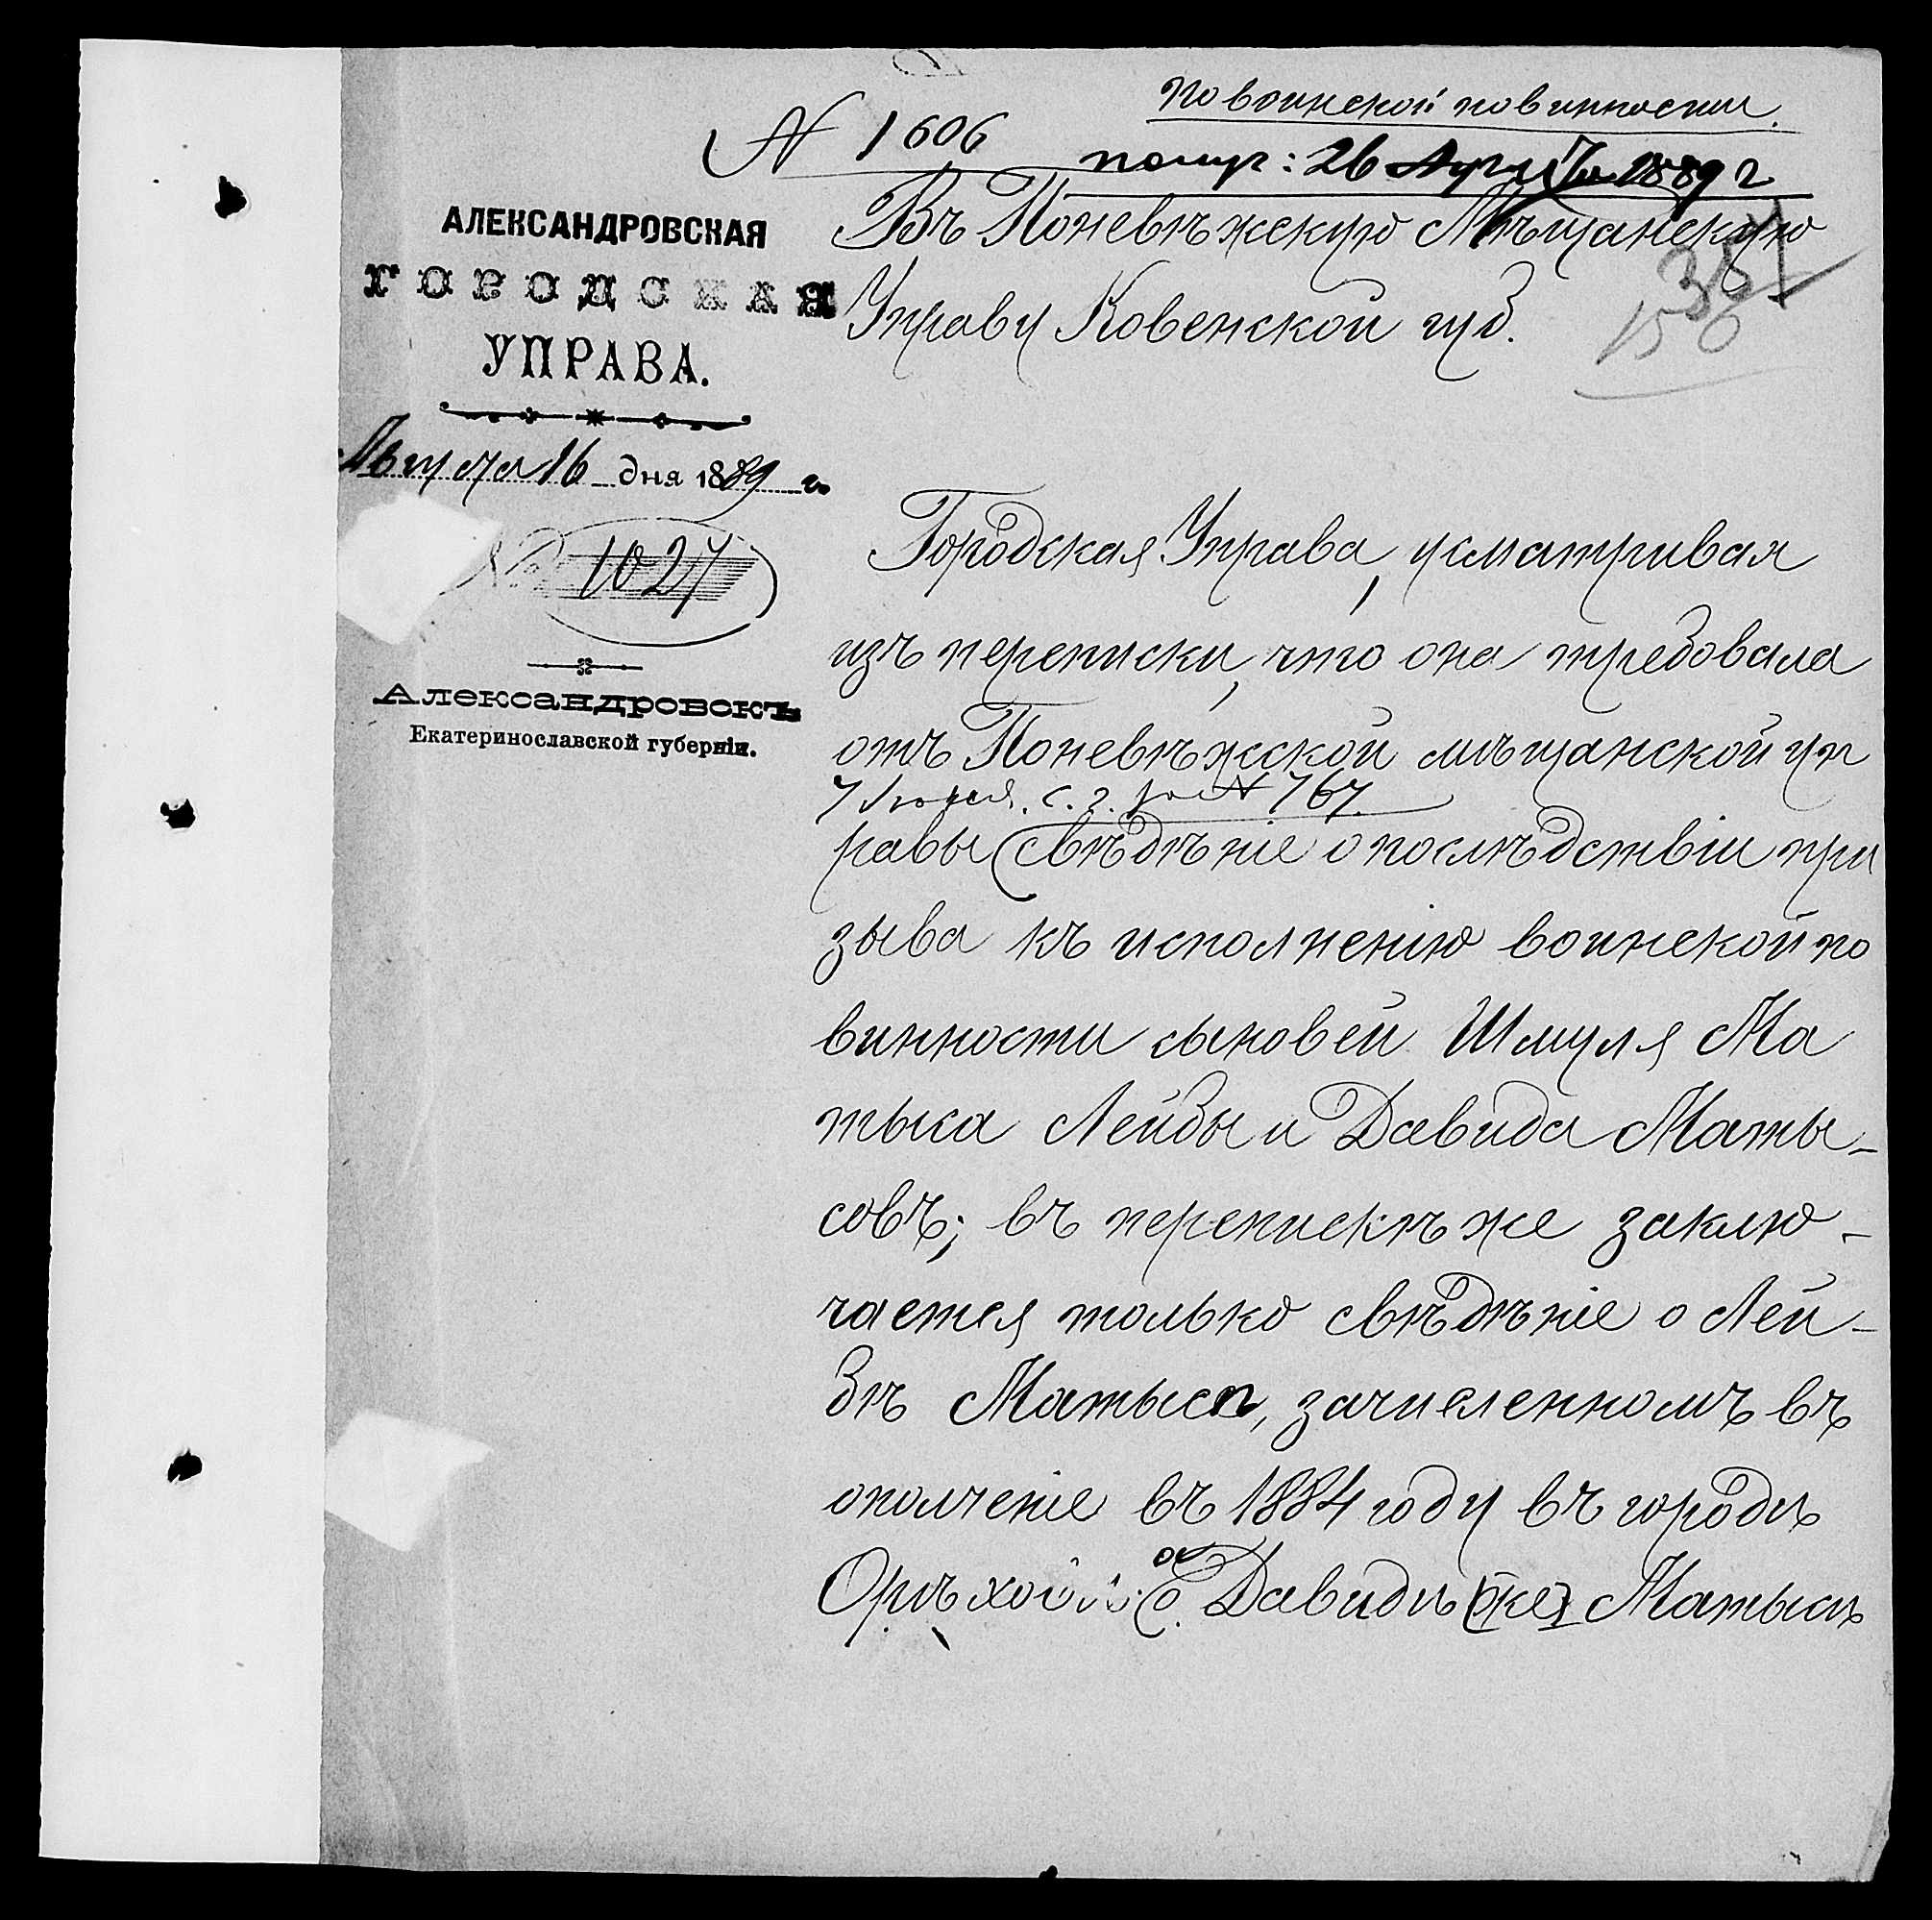 По воинской повинности.
№ 1606
получ: 26 Августа 1889 г
АЛЕКСАНДРОВСКАЯ
ГОРОДСКАЯ
УПРАВА.
Августа 16 дня 1889 г.
№ 1027
Александровскъ
Екатеринославской губерніи.
Въ Поневѣжскую Мѣщанскую
Управу Ковенской губ.
381
150
Городская Управа, усматривая
изъ переписки, что она требовала
отъ Поневѣжской мѣщанской уп
7 Іюня с. г. за № 767.
равы свѣдѣніе о послѣдствіи при
зыва къ исполненію воинской по
винности сыновей Шмуля Ма
тыса Лейбы и Давида Маты-
совъ; въ перепискѣ же заклю-
чается только свѣдѣніе о Лей-
бѣ Матысѣ, зачисленномъ въ
ополченіе въ 1884 году въ городѣ
Орѣховѣ о Давидѣ же Матысѣ